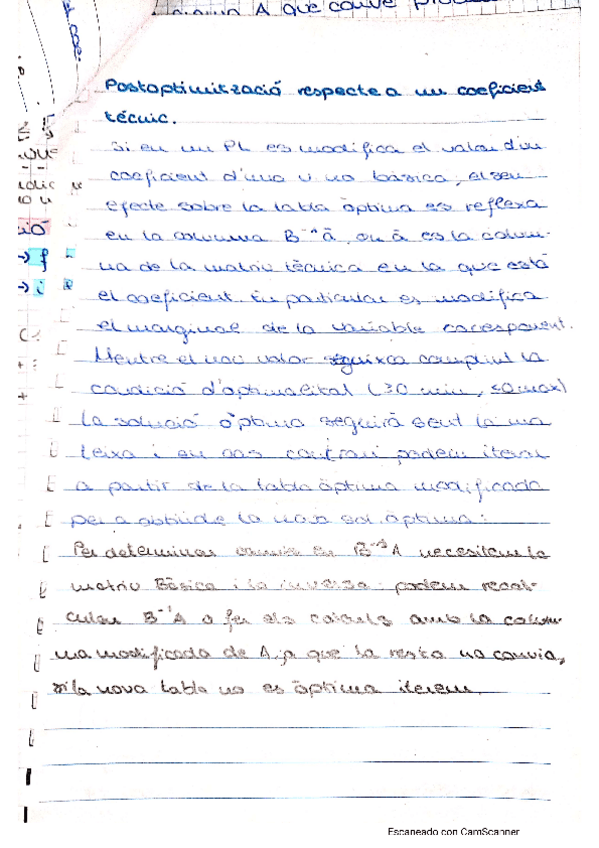 A que canvie
Postoptimització respecte a un coeficient
tècnic.
Si en un PL es modifica el valor d'un
coeficient d'una v no bàsica, el seu
efecte sobre la tabla òptima es reflexa
en la columna B⁻¹ā, on ā es la colum-
na de la matriu tècnica en la que està
el coeficient. En particular es modifica
el marginal de la variable corresponent.
Mentre el nou valor seguixca complint la
condició d'optimalitat (≥0 min, ≤0 max)
la solució òptima seguirà sent la ma
teixa i en cas contrari podem iterar
a partir de la tabla òptima modificada
per a obtindre la nova sol. òptima:
Per determinar canvis en B⁻¹A necesitem la
matriu Bàsica i la inversa: podem recal-
cular B⁻¹A o fer els càlculs amb la colum
na modificada de A ja que la resta no canvia,
si la nova tabla no es òptima iterem.
Escaneado con CamScanner